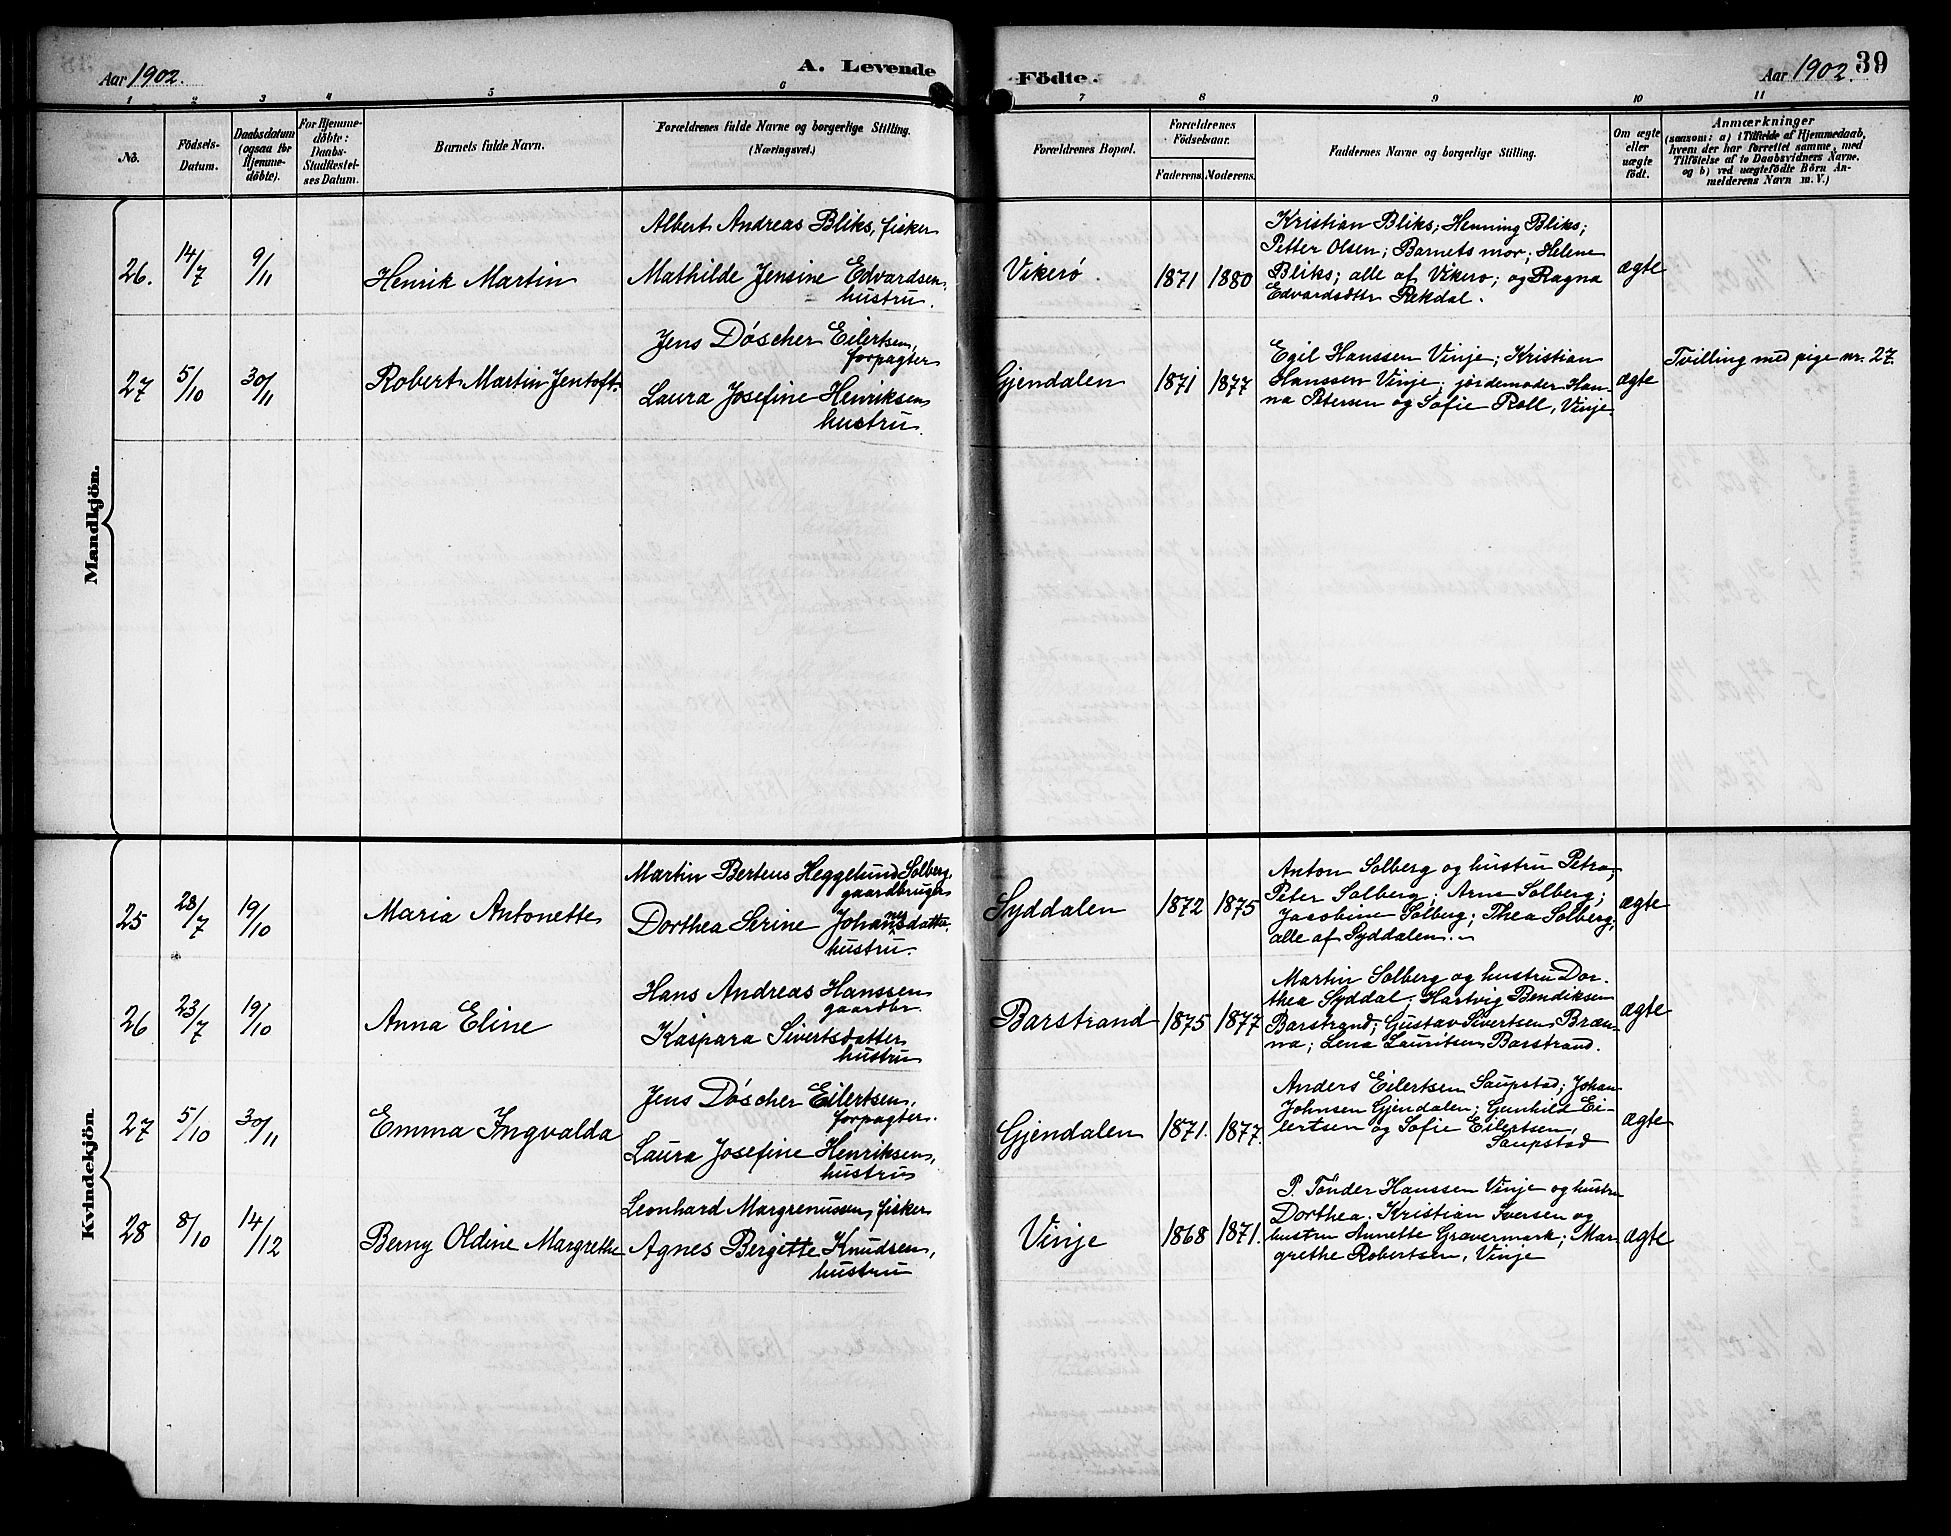 Aar 1902.
A. Levende
Födte.
Aar 1902.
39
1 2 3 4 5 6 7 8 9 10 11
No.
Födsels-
Datum.
Daabsdatum
(ogsaa for
Hjemme-
döbte).
For Hjemme-
döbte:
Daabs-
Stadfæstel-
ses Datum.
Barnets fulde Navn.
Forældrenes fulde Navne og borgerlige Stilling.
(Næringsvei.)
Forældrenes Bopæl.
Forældrenes
Födselsaar.
Faderens. Moderens.
Faddernes Navne og borgerlige Stilling.
Om ægte
eller
uægte
födt.
Anmærkninger
(saasom: a) i Tilfælde af Hjemmedaab,
hvem der har forrettet samme, med
Tilföielse af to Daabsvidners Navne.
og b) ved uægtefödte Börn An-
melderens Navn m. V.)
Mandkjön.
26.
14/7
9/11
Henrik Martin
Albert Andreas Bliks, fisker
Mathilde Jensine Edvardsen,
hustru.
Vikerø.
1871 1880
Kristian Bliks; Henning Bliks;
Petter Olsen; Barnets mor; Helene
Bliks; alle af Vikerø; og Ragna
Edvardsdttr Rekdal.
ægte
27
5/10
30/11
Robert Martin Jentoft
Jens Döscher Eilertsen,
forpagter
Laura Josefine Henriksen
hustru.
Gjendalen
1871 1877
Egil Hanssen Vinje; Kristian
Hanssen Vinje; jordemoder Han-
na Petersen og Sofie Roll, Vinje
ægte
Tvilling med pige nr. 27.
Kvindekjön.
25
28/7
19/10
Maria Antonette
Martin Berteus Heggelund Solberg,
gaardbruger
Dorthea Serine Johannsdatter,
hustru.
Syddalen
1872 1875
Anton Solberg og hustru Petra;
Peter Solberg; Arna Solberg;
Jacobine Solberg; Thea Solberg,
alle af Syddalen.
ægte
26
23/7
19/10
Anna Eline
Hans Andreas Hanssen
gaardbr.
Kaspara Sivertsdatter
hustru
Barstrand
1875 1877
Martin Solberg og hustru Dor-
thea Syddal; Hartvig Bendiksen
Barstrand; Gustav Sivertsen Bræn-
na; Lena Lauritsen Barstrand.
ægte
27
5/10
30/11
Emma Ingvalda
Jens Döscher Eilertsen,
forpagter.
Laura Josefine Henriksen,
hustru
Gjendalen
1871. 1877.
Anders Eilertsen Saupstad; Johan
Johnsen Gjendalen; Gunhild Ei-
lertsen og Sofie Eilertsen,
Saupstad
ægte
28
8/10
14/12
Berny Oldine Margrethe
Leonhard Margrenussen, fisker
Agnes Bergitte Knudsen,
hustru
Vinje
1868 1871.
P. Tönder Hanssen Vinje og hustru
Dorthea. Kristian Iversen og
hustru Annette Gravermark; Mar-
grethe Robertsen, Vinje
ægte